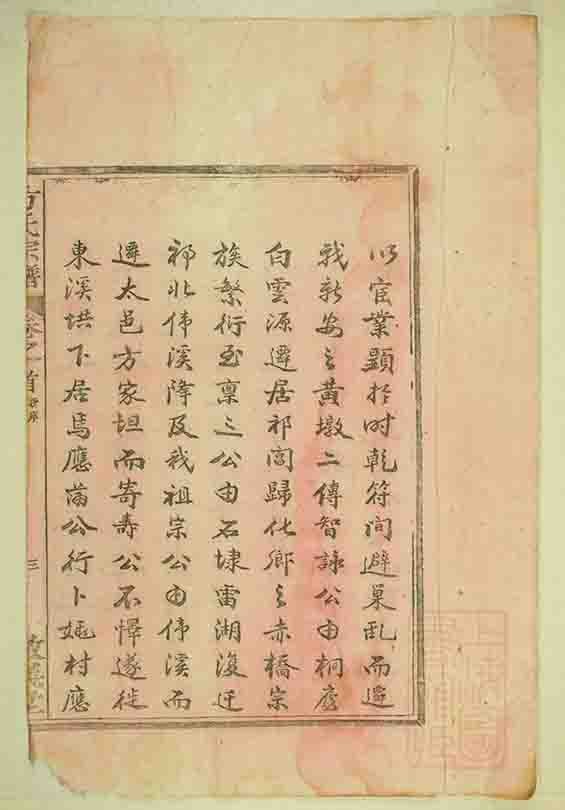 以宦業顯於时乾符间避巢乱而遷
我新安之黄墩二傳智詠公由桐廬
白雲源遷居祁閶歸化鄉之赤橋宗
族繁衍至禀三公由石埭雷湖復迁
祁北伟溪降及我祖宗公由伟溪而
遷太邑方家坦而寄壽公不憚遂徙
東溪垬下居焉應滿公行卜村應
方氏宗譜
卷之首
三